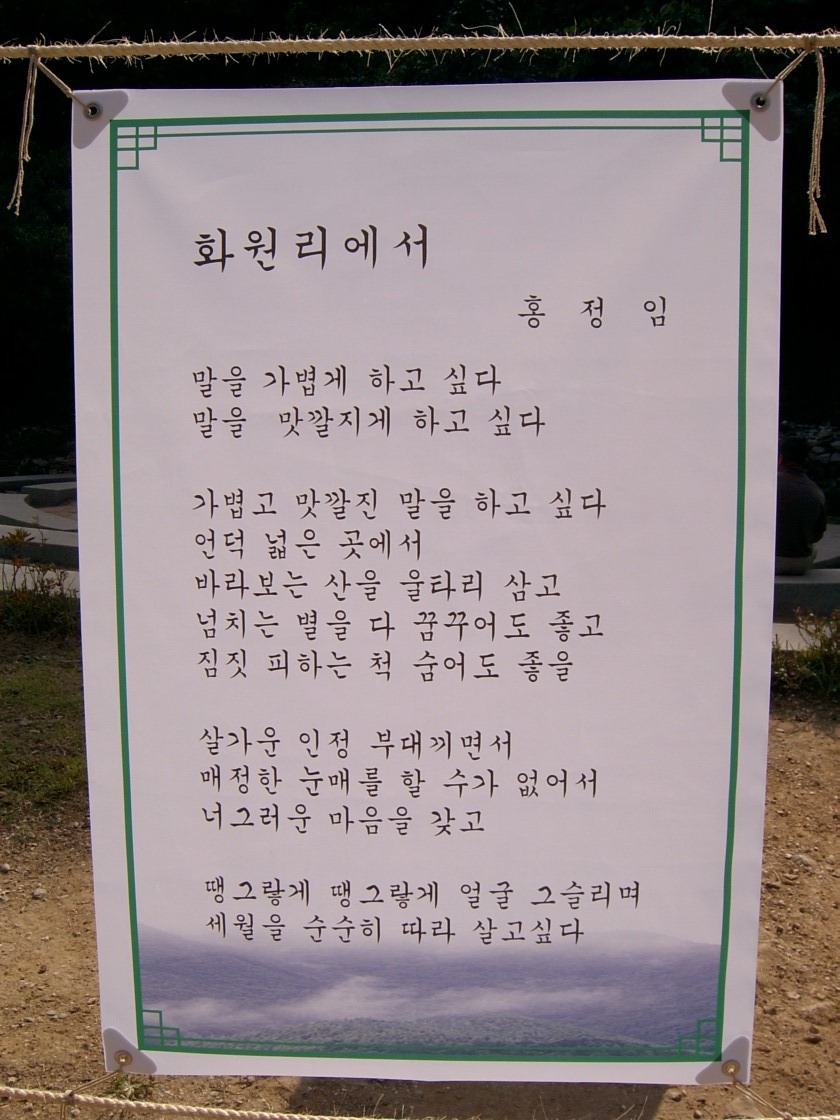 화원리에서
홍 정 임
말을 가볍게 하고 싶다
말을 맛깔지게 하고 싶다
가볍고 맛깔진 말을 하고 싶다
언덕 넓은 곳에서
바라보는 산을 울타리 삼고
넘치는 별을 다 꿈꾸어도 좋고
짐짓 피하는 척 숨어도 좋을
살가운 인정 부대끼면서
매정한 눈매를 할 수가 없어서
너그러운 마음을 갖고
땡그랗게 땡그랗게 얼굴 그슬리며
세월을 순순히 따라 살고싶다